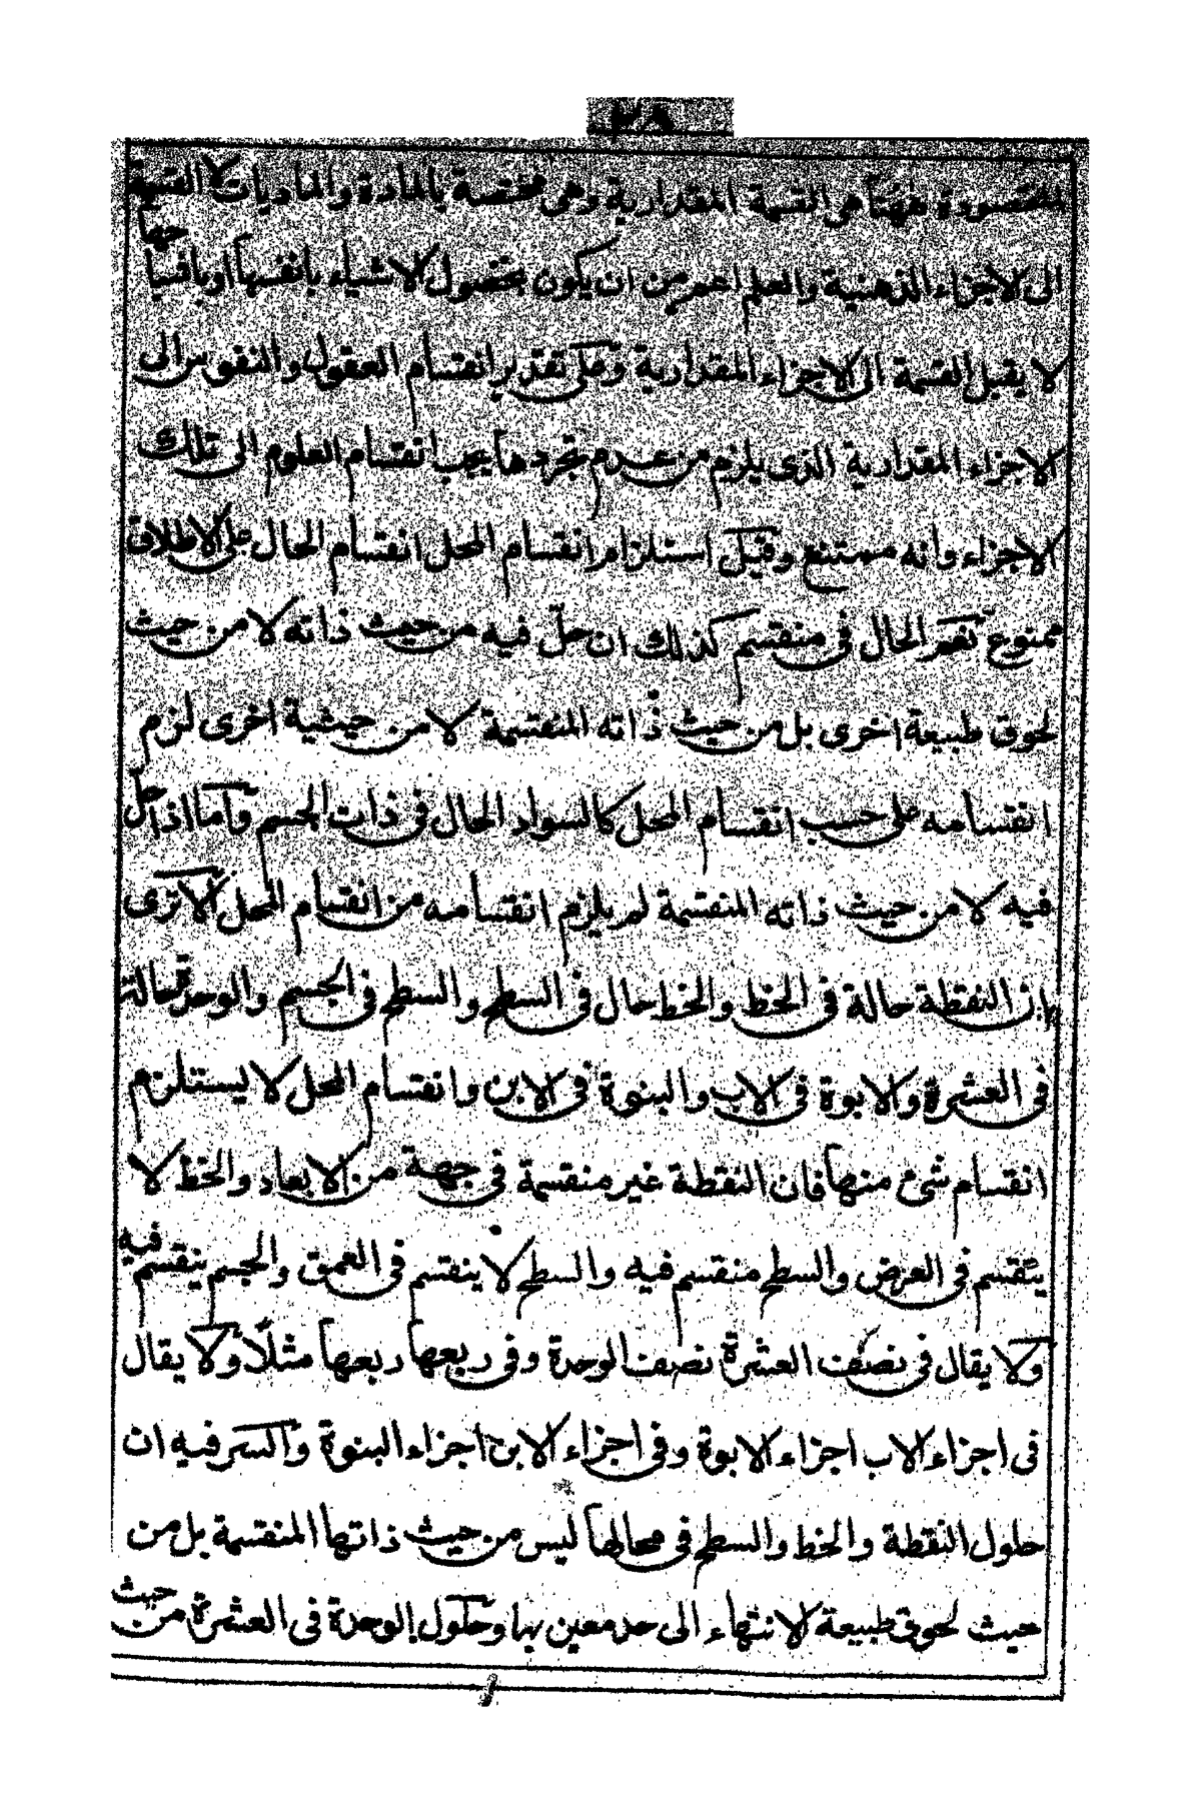 ٢٨
المقصودة ههنا هى القسمة المقدارية وهى مختصة بالمادة والماديات لا القسمة
الى الاجزاء الذهنية والعلم اعم من ان يكون بحصول الاشياء بانفسها او باشباحها
لا يقبل القسمة الى الاجزاء المقدارية وعلى تقدير انقسام العقول والنفوس الى
الاجزاء المقدارية الذى يلزم من عدم تجردها يجب انقسام العلوم الى تلك
الاجزاء وانه ممتنع وقيل استلزام انقسام المحل انقسام الحال على الاطلاق
ممنوع نعم الحال فى منقسم كذلك ان حلّ فيه من حيث ذاته لا من حيث
لحوق طبيعة اخرى بل من حيث ذاته المنقسمة لا من حيثية اخرى لزم
انقسامه على حسب انقسام المحل كالسواد الحال فى ذات الجسم واما اذا حل
فيه لا من حيث ذاته المنقسمة لم يلزم انقسامه من انقسام المحل الا ترى
ان النقطة حالة فى الخط والخط حال فى السطح والسطح فى الجسم والوحدة حالة
فى العشرة والابوة فى الاب والبنوة فى الابن وانقسام المحل لا يستلزم
انقسام شئ منها فان النقطة غير منقسمة فى جهة من الابعاد والخط لا
ينقسم فى العرض والسطح منقسم فيه والسطح لا ينقسم فى العمق والجسم ينقسم فيه
ولا يقال فى نصف العشرة نصف الوحدة وفى ربعها ربعها مثلاً ولا يقال
فى اجزاء الاب اجزاء الابوة وفى اجزاء الابن اجزاء البنوة والسر فيه ان
حلول النقطة والخط والسطح فى محالها ليس من حيث ذاتها المنقسمة بل من
حيث لحوق طبيعة الانتهاء الى حد معين بها وحلول الوحدة فى العشرة من حيث